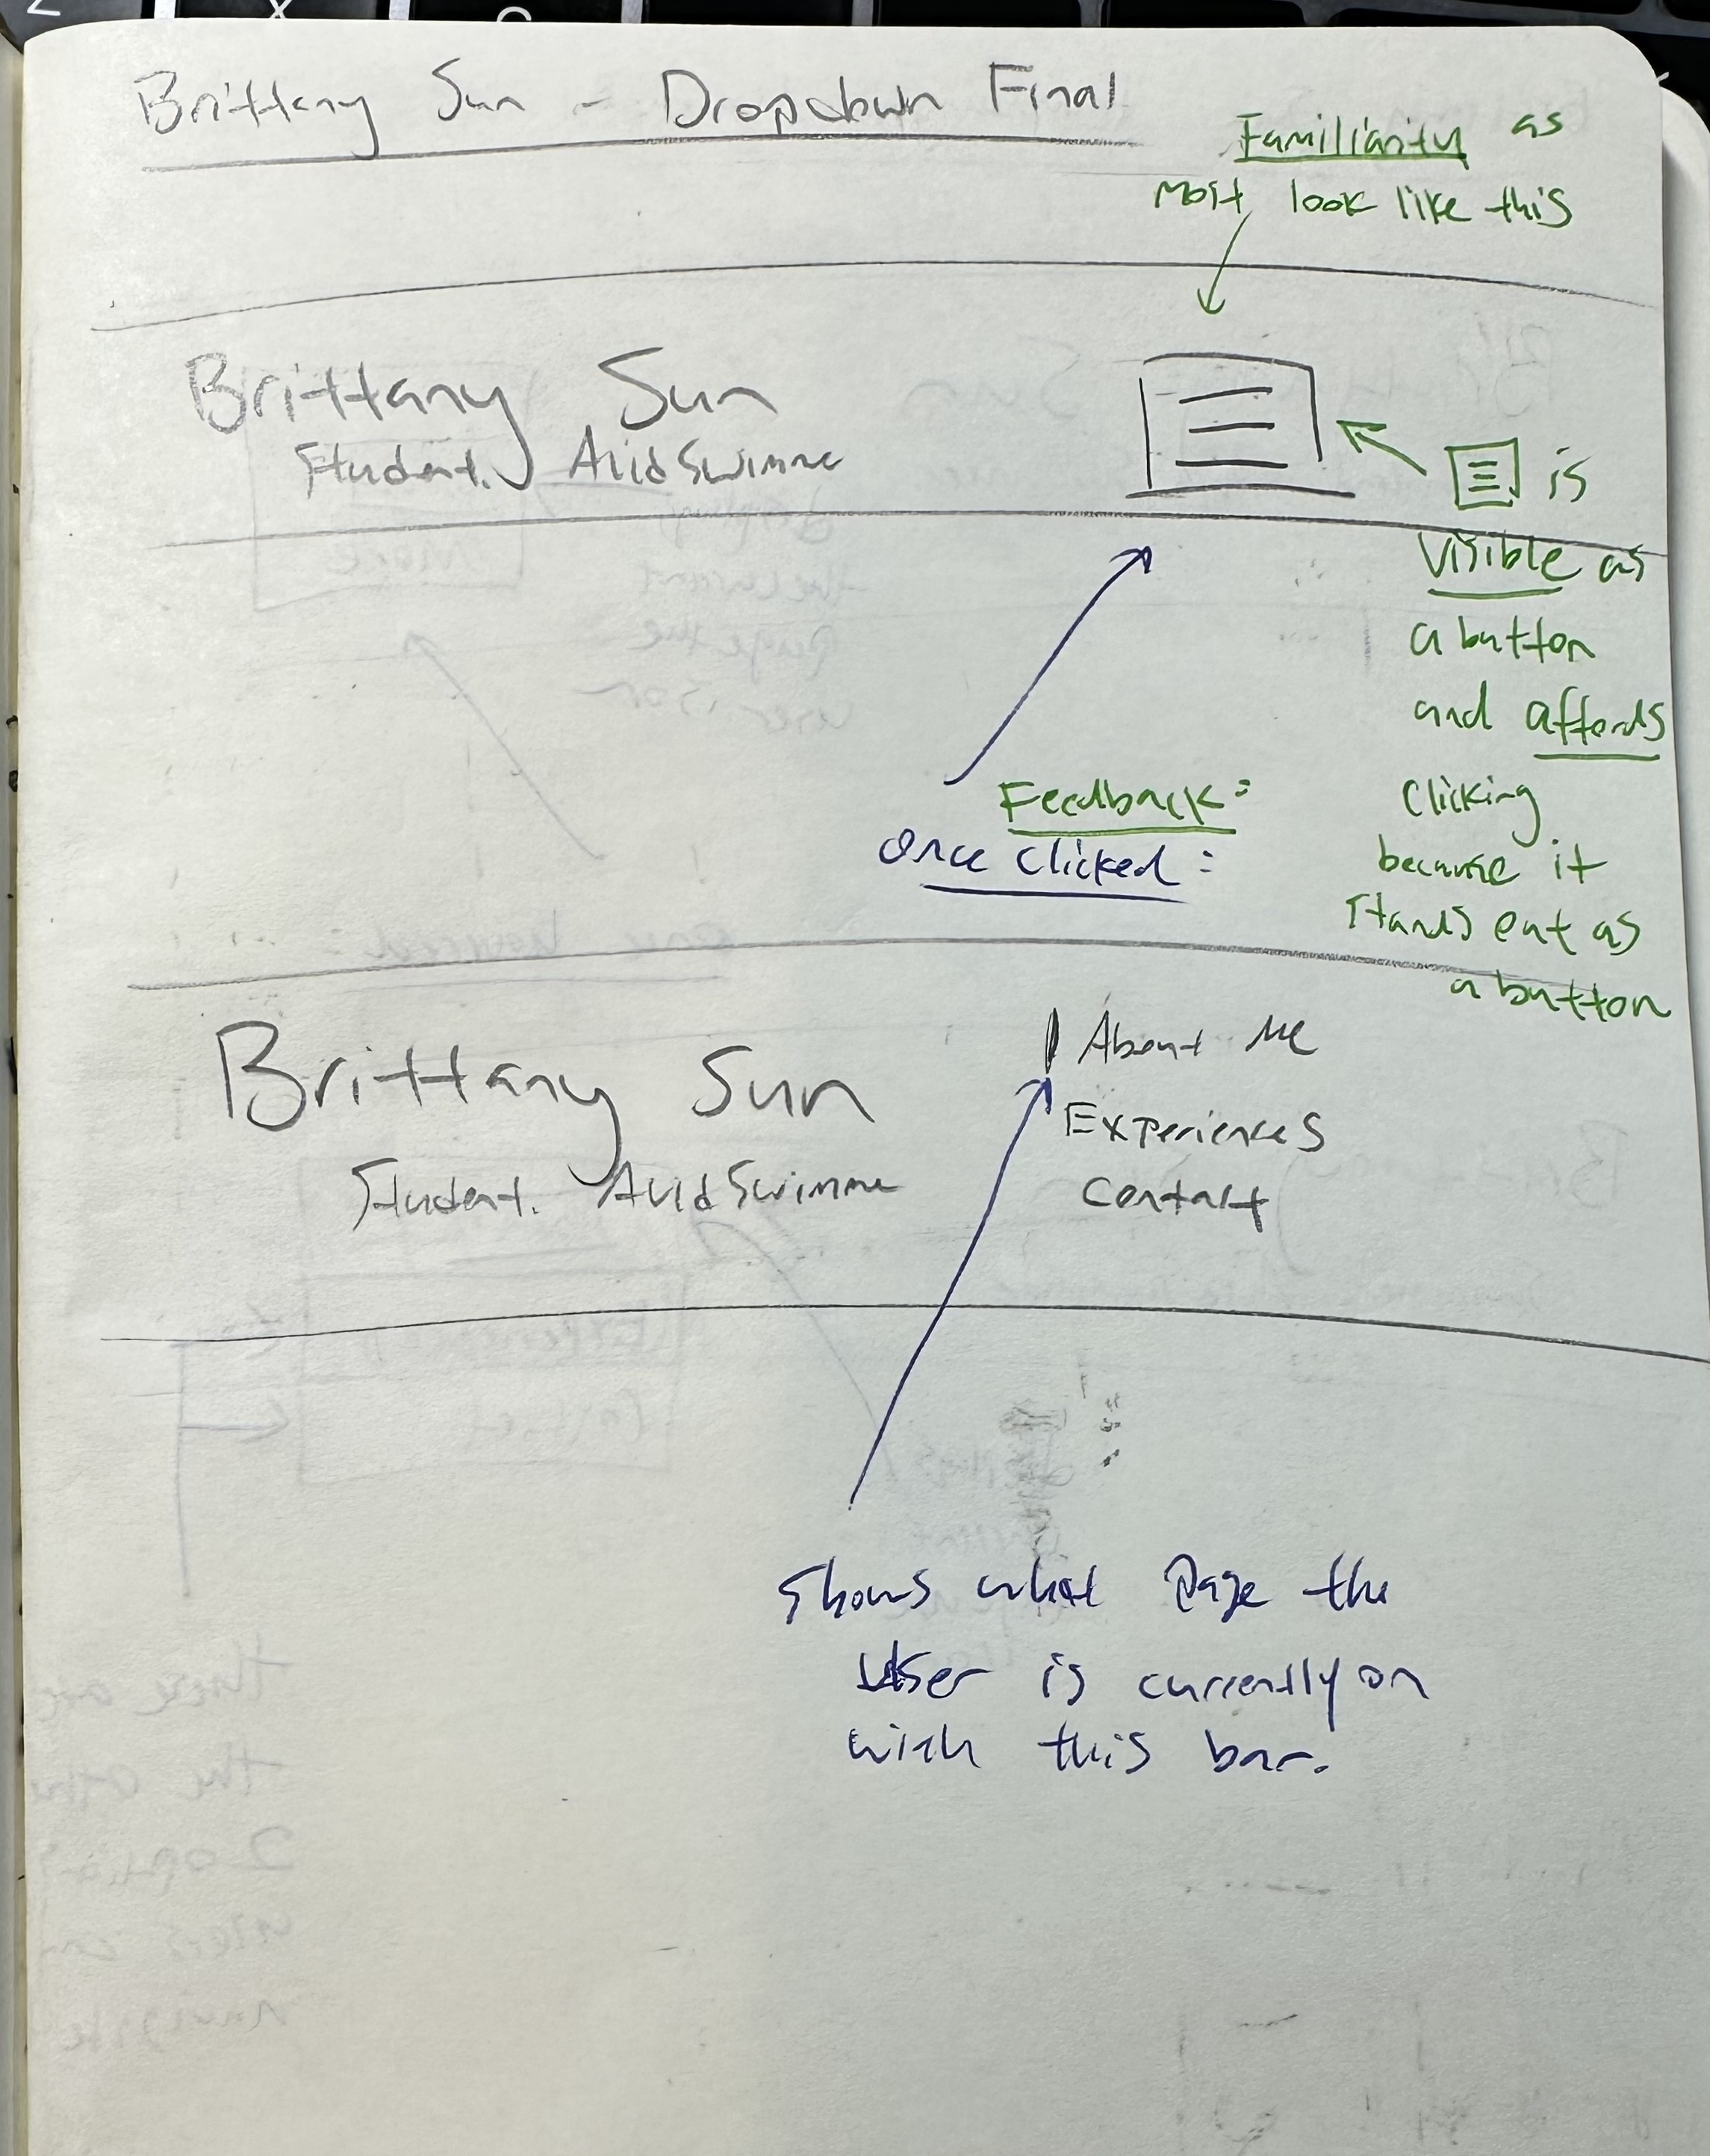 Brittany Sun - Dropdown Final
Familiarity as
most look like this
Brittany Sun
Student. Avid Swimme
is
visible as
a button
and affords
clicking
because it
stands out as
a button
Feedback:
once clicked:
Brittany Sun
Student. Avid Swimme
About Me
Experiences
Contact
Shows what page the
user is currently on
with this bar.